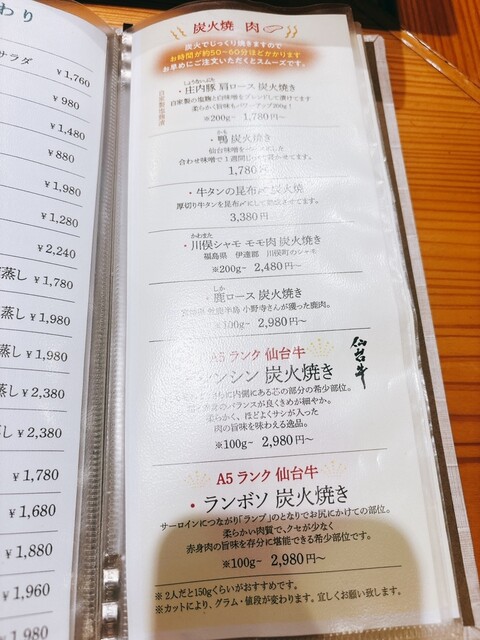 わり
サラダ
¥1,760
¥980
¥1,480
¥880
¥1,980
¥1,280
¥2,240
蒸し ¥1,780
蒸し ¥1,980
蒸し ¥1,980
し ¥2,380
し ¥2,380
¥1,780
¥1,680
¥1,880
¥1,960
1,980
炭火焼 肉
炭火でじっくり焼きますので
お時間が約50~60分ほどかかります
お早めにご注文いただくとスムーズです。
自家製塩麹漬
しょうないぶた
・庄内豚 肩ロース 炭火焼き
自家製の塩麹と白味噌をブレンドして漬けてます
柔らかく旨味もパワーアップ200g!
※200g~ 1,780円~
かも
・鴨 炭火焼き
仙台味噌を
合わせ味噌で1週間
1,780
・牛タンの昆布〆 炭火焼
厚切り牛タンを昆布〆にして
3,380円~
かわまた
・川俣シャモ モモ肉 炭火焼き
福島県 伊達郡 川俣町のシャモ
※200g~ 2,480円~
しか
・鹿ロース 炭火焼き
小野寺さんが獲った鹿肉。
※100g~ 2,980円~
A5 ランク 仙台牛
仙台牛
ンシン 炭火焼き
内側にある芯の部分の希少部位。
のバランスが良くきめが細やか。
柔らかく、ほどよくサシが入った
肉の旨味を味わえる逸品。
※100g~ 2,980円~
A5 ランク 仙台牛
・ランボソ 炭火焼き
サーロインにつながり「ランプ」のとなりでお尻にかけての部位。
柔らかい肉質で、クセが少なく
赤身肉の旨味を存分に堪能できる希少部位です。
※100g~ 2,980円~
※2人だと150gくらいがおすすめです。
※カットにより、グラム・値段が変わります。宜しくお願い致します。